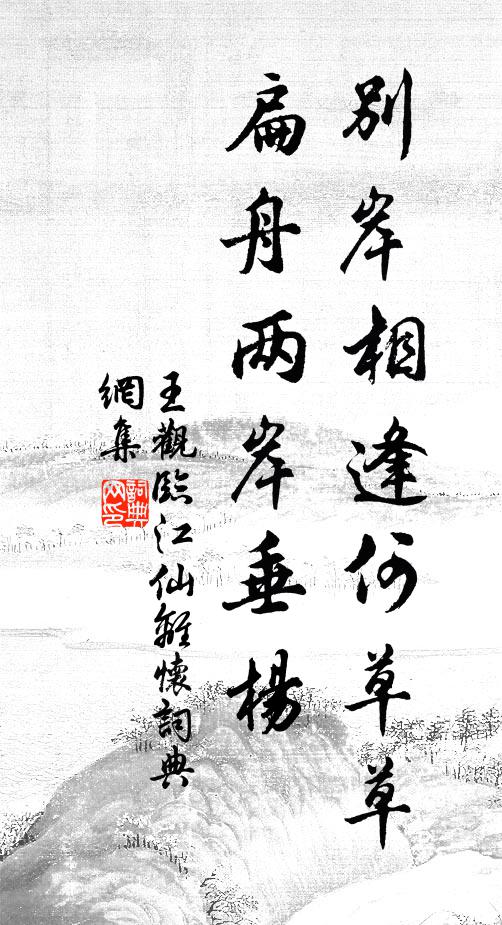 别岸相逢何草草
扁舟两岸垂楊
王觀臨江仙離懷詞典
網集
詞典網印